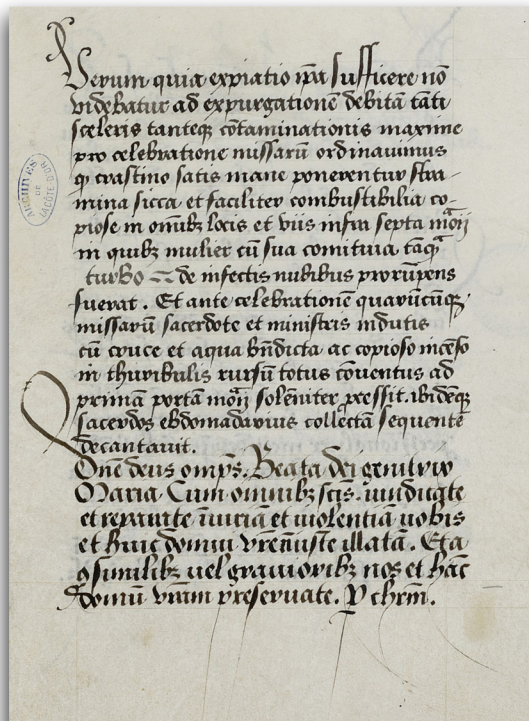 Verum quia expiatio ip̄a sufficere nō
videbatur ad expurgationē debitā tāti
sceleris tanteqꝫ cōtaminationis maxime
pro celebratione missarū ordinauimus
ꝙ crastino satis mane ponerentur stra-
mina sicca et faciliter combustibilia co-
piose in omībꝫ locis et viis infra septa
in quibꝫ mulier cū sua comitiua
turbo de infectis nubibus prorūpens
fuerat. Et ante celebrationē quarūcūqꝫ
missarū sacerdote et ministris indutis
cū cruce et aqua bn̄dicta ac copioso incēso
in thuribulis rursū totus cōuentus ad
primā portā solēniter ꝓcessit. ibideqꝫ
sacerdos ebdomadarius collectā sequentē
decantauit.
deus omp̄s. Beata dei genitrix
Maria Cum omnibꝫ sc̄is. uindicate
et reparate iniuriā et uiolentiā uobis
et huic domui vr̄e iniuste illatā. Et a
ꝯsimilibꝫ uel grauioribꝫ nos et hāc
domū vr̄am preseruate. P chr̄m.
ARCHIVES
DE
LA CÔTE D'OR